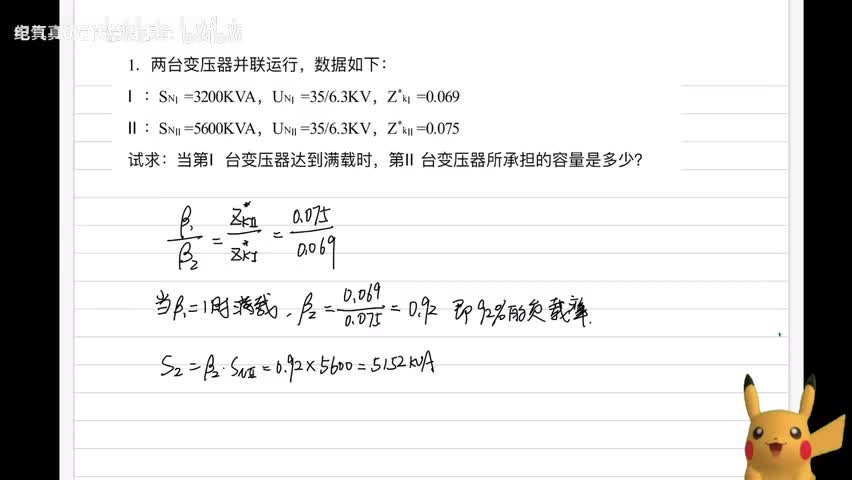 1. 两台变压器并联运行，数据如下：
Ⅰ ：SNⅠ =3200KVA，UNⅠ =35/6.3KV，Z*kⅠ =0.069
Ⅱ ：SNⅡ =5600KVA，UNⅡ =35/6.3KV，Z*kⅡ =0.075
试求：当第Ⅰ 台变压器达到满载时，第Ⅱ 台变压器所承担的容量是多少？
β₁/β₂ = Z*kⅡ/Z*kⅠ = 0.075/0.069
当β₁=1时满载，β₂ = 0.069/0.075 = 0.92 即92%的负载率.
S₂ = β₂·SNⅡ = 0.92×5600 = 5152kVA